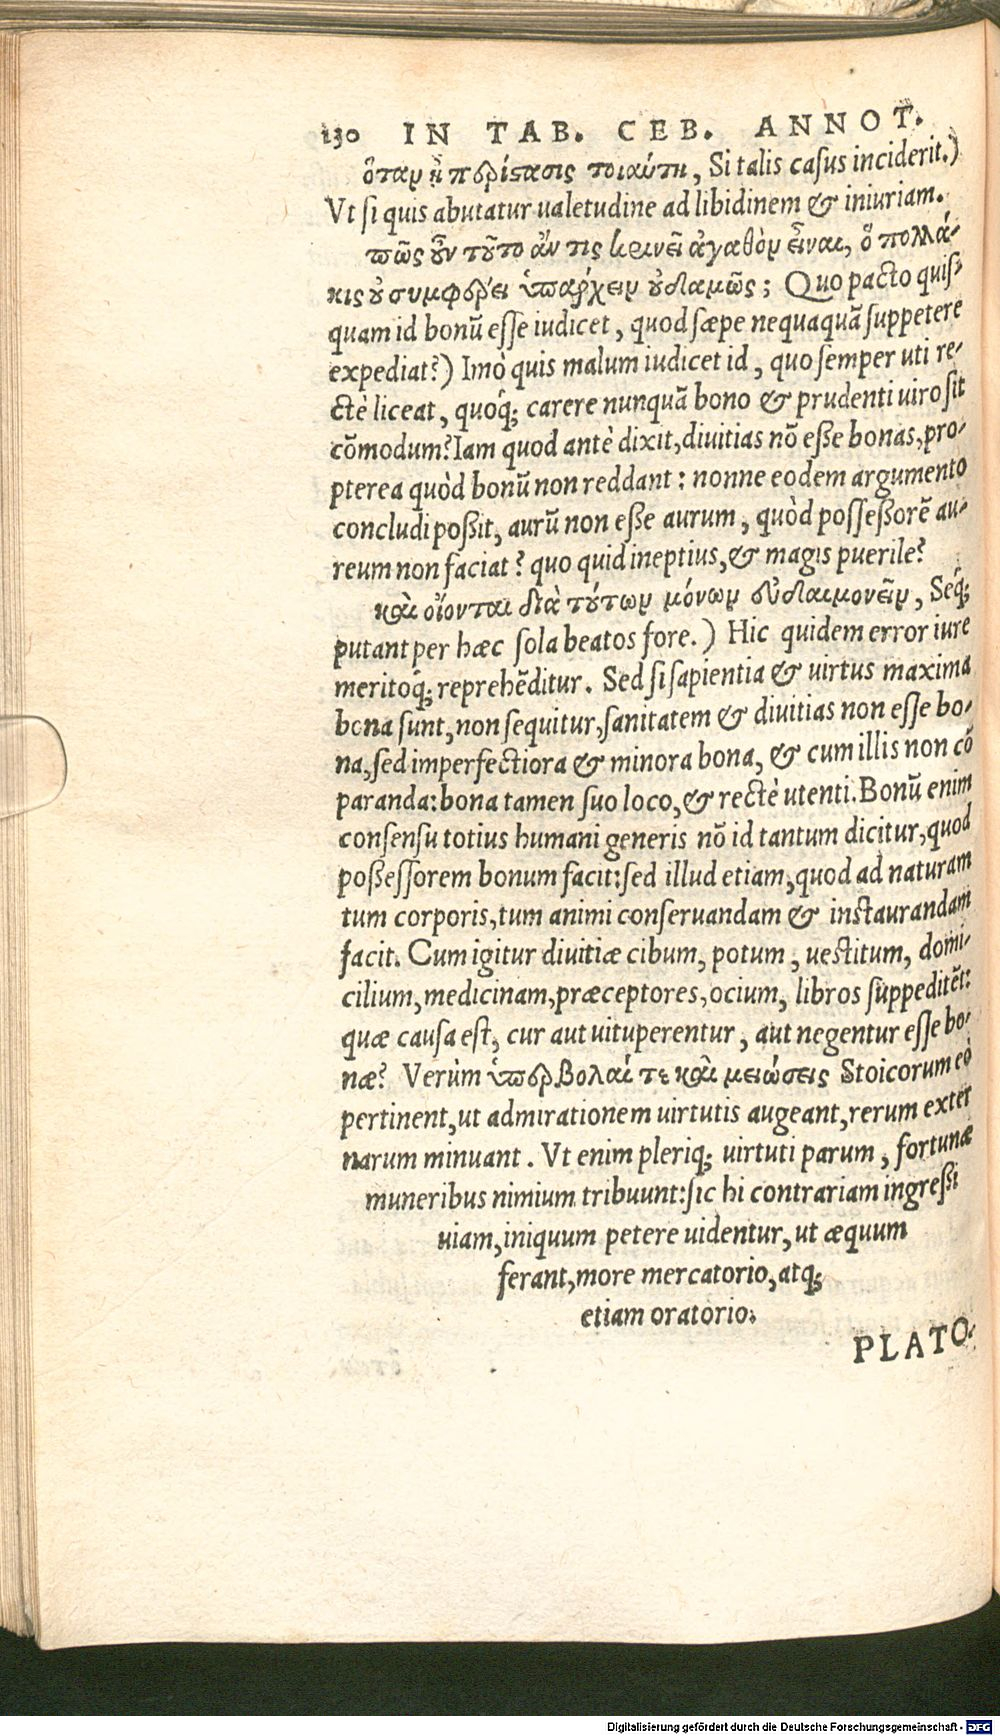 130 IN TAB. CEB. ANNOT.
ὅταν ᾖ περίστασις τοιαύτη, Si talis casus inciderit.)
Vt si quis abutatur ualetudine ad libidinem & iniuriam.
πῶς οὖν τοῦτο ἄν τις κρινεῖ ἀγαθὸν εἶναι, ὃ πολλά-
κις οὐ συμφέρει ὑπάρχειν οὐδαμῶς; Quo pacto quis-
quam id bonũ esse iudicet, quod sæpe nequaquã suppetere
expediat?) Imò quis malum iudicet id, quo semper uti re-
ctè liceat, quoq́; carere nunquã bono & prudenti uiro sit
cõmodum? Iam quod antè dixit, diuitias nõ esse bonas, pro-
pterea quòd bonũ non reddant: nonne eodem argumento
concludi poßit, aurũ non esse aurum, quòd possessorẽ au-
reum non faciat? quo quid ineptius, & magis puerile?
καὶ οἴονται διὰ τούτων μόνων εὐδαιμονεῖν, Seq́;
putant per hæc sola beatos fore.) Hic quidem error iure
meritoq́; reprehẽditur. Sed si sapientia & uirtus maxima
bona sunt, non sequitur, sanitatem & diuitias non esse bo-
na, sed imperfectiora & minora bona, & cum illis non cõ
paranda: bona tamen suo loco, & rectè utenti. Bonũ enim
consensu totius humani generis nõ id tantum dicitur, quod
poßessorem bonum facit: sed illud etiam, quod ad naturam
tum corporis, tum animi conseruandam & instaurandam
facit. Cum igitur diuitiæ cibum, potum, uestitum, domi-
cilium, medicinam, præceptores, ocium, libros suppeditẽt:
quæ causa est, cur aut uituperentur, aut negentur esse bo-
næ? Verùm ὑπερβολαί τε καὶ μειώσεις Stoicorum eò
pertinent, ut admirationem uirtutis augeant, rerum exter
narum minuant. Vt enim pleriq; uirtuti parum, fortunæ
muneribus nimium tribuunt: sic hi contrariam ingreßi
uiam, iniquum petere uidentur, ut æquum
ferant, more mercatorio, atq;
etiam oratorio.
PLATO-
Digitalisierung gefördert durch die Deutsche Forschungsgemeinschaft - DFG